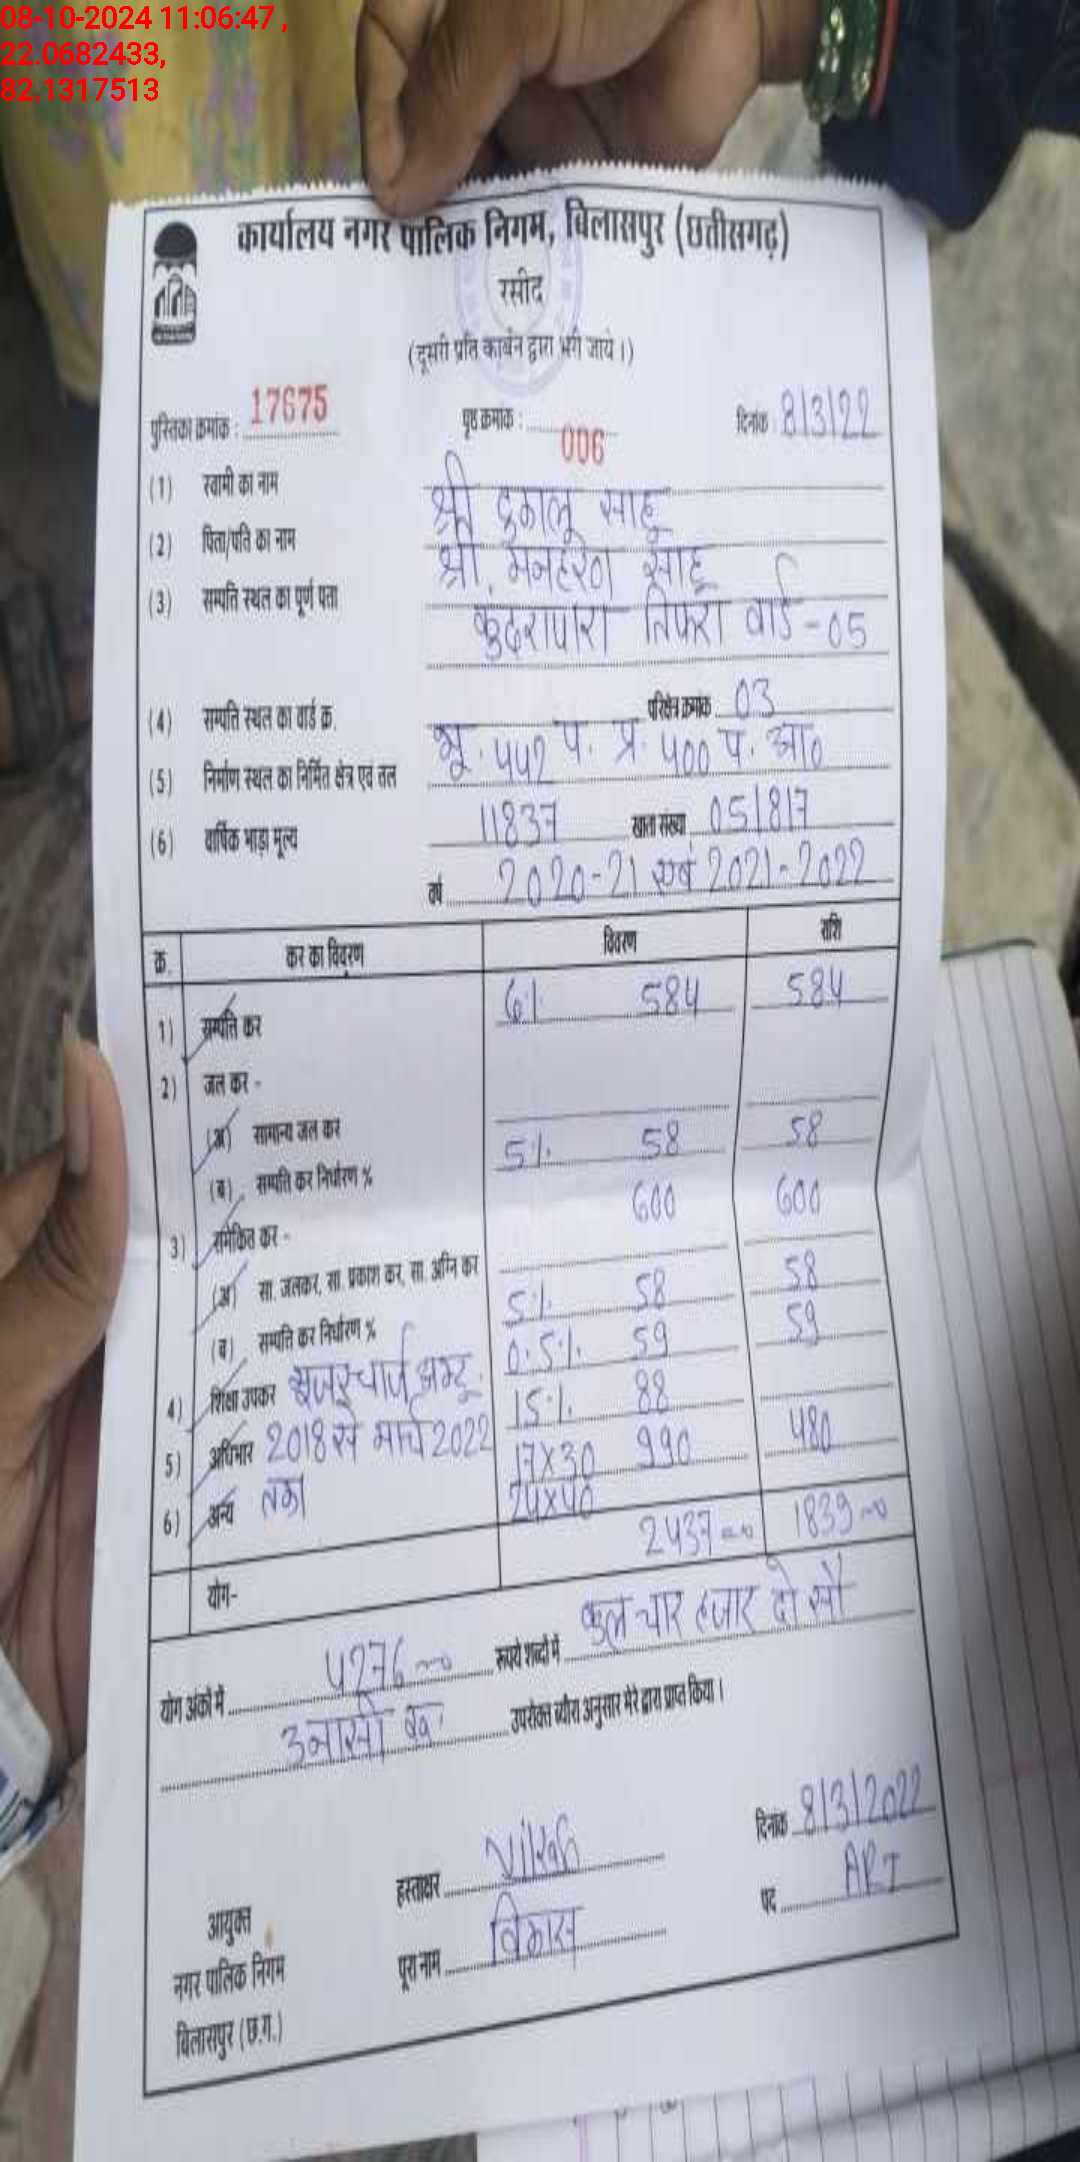 08-10-2024 11:06:47 ,
22.0682433,
82.1317513
कार्यालय नगर पालिक निगम, बिलासपुर (छत्तीसगढ़)
रसीद
(दूसरी प्रति कार्बन द्वारा भरी जाये।)
पुस्तिका क्रमांक : 17675 पृष्ठ क्रमांक : 006 दिनांक 8/3/22
(1) स्वामी का नाम श्री दुकालू साहू
(2) पिता/पति का नाम श्री. मनहरण साहू
(3) सम्पत्ति स्थल का पूर्ण पता कुंदरापारा तिफरा वार्ड - 05
(4) सम्पत्ति स्थल का वार्ड क्र. परिक्षेत्र क्रमांक 03
(5) निर्माण स्थल का निर्मित क्षेत्र एवं तल भू. 442 प. प्र. 400 प. आ०
(6) वार्षिक भाड़ा मूल्य 11837 खाता संख्या 051817
वर्ष 2020-21 एवं 2021-2022
क्र. कर का विवरण विवरण राशि
1) सम्पत्ति कर 6% 584 584
2) जल कर -
(अ) सामान्य जल कर
(ब) सम्पत्ति कर निर्धारण % 5% 58 58
3) समेकित कर - 600 600
(अ) सा. जलकर, सा. प्रकाश कर, सा. अग्नि कर
(ब) सम्पत्ति कर निर्धारण % 5% 58 58
4) शिक्षा उपकर 0.5% 59 59
15% 88
5) अधिभार 2018 से मार्च 2022 17x30 990 480
6) अन्य तका 24x40
योग- 2437 1839
योग अंकों में 4276 रूपये शब्दों में कुल चार हजार दो सौ
उनासी उपरोक्त ब्यौरा अनुसार मेरे द्वारा प्राप्त किया।
हस्ताक्षर दिनांक 8/3/2022
आयुक्त पूरा नाम विकास पद ART
नगर पालिक निगम
बिलासपुर (छ.ग.)